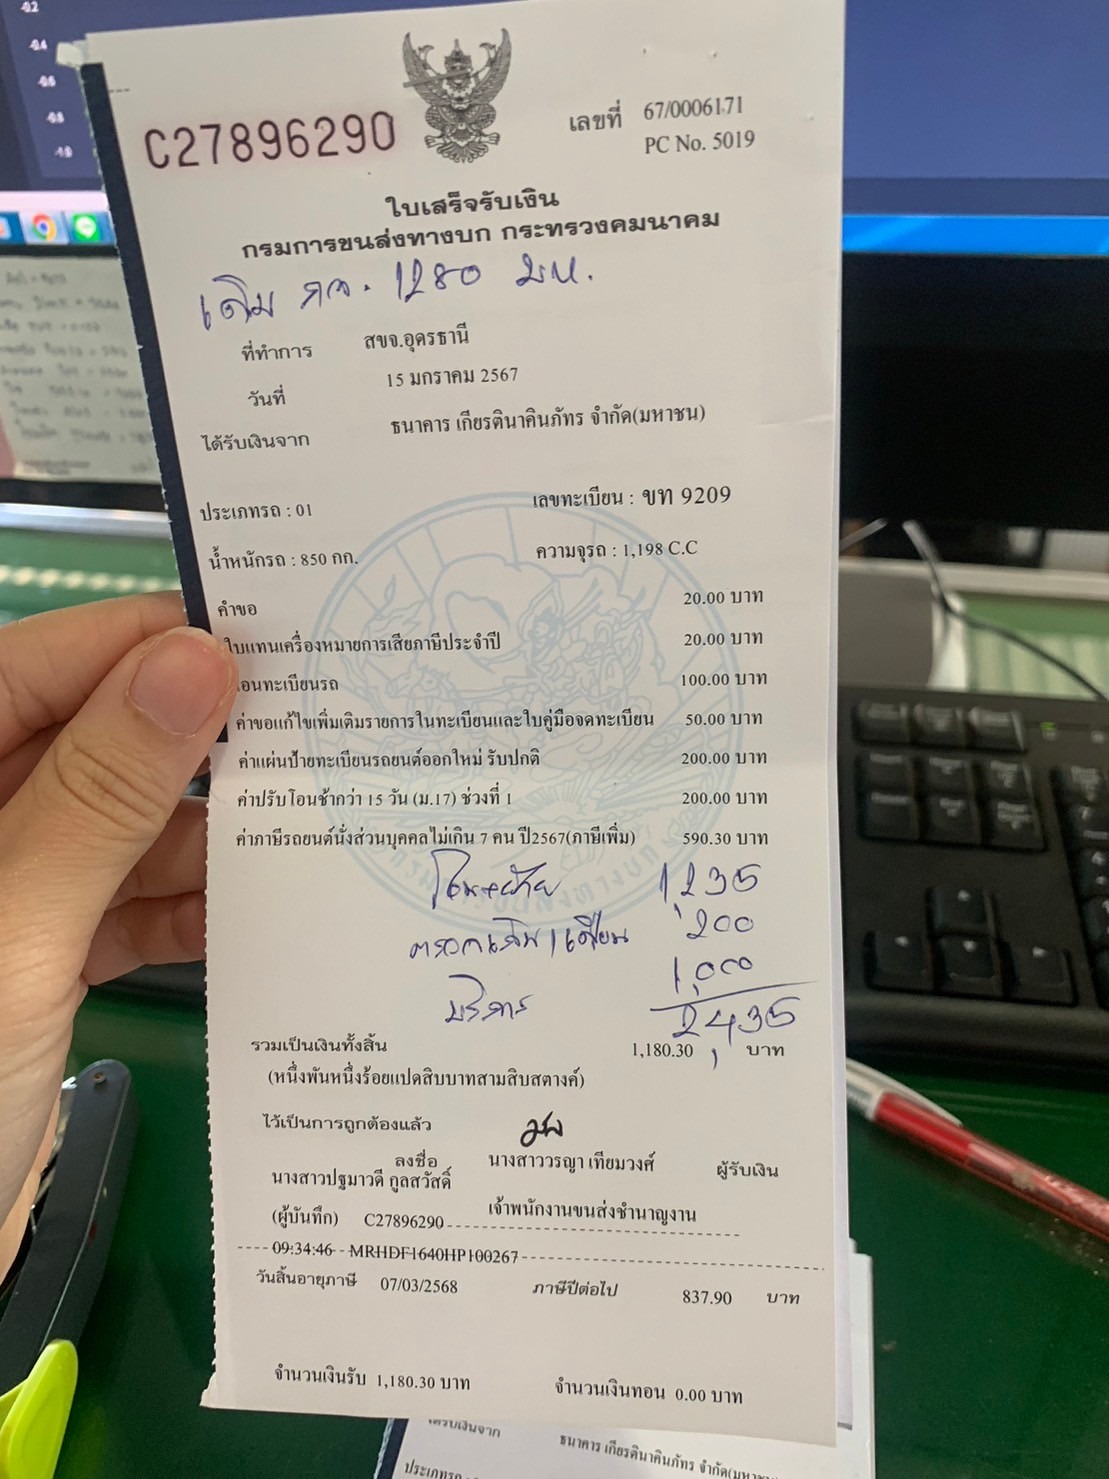 -0.2
-0.4
-0.6
-0.8
-1.0
C27896290
เลขที่ 67/0006171
PC No. 5019
ใบเสร็จรับเงิน
กรมการขนส่งทางบก กระทรวงคมนาคม
เดิม กจ. 1280 มห.
ที่ทำการ สขจ.อุดรธานี
วันที่ 15 มกราคม 2567
ได้รับเงินจาก ธนาคาร เกียรตินาคินภัทร จำกัด(มหาชน)
ประเภทรถ : 01 เลขทะเบียน : ขท 9209
น้ำหนักรถ : 850 กก. ความจุรถ : 1,198 C.C
คำขอ 20.00 บาท
ใบแทนเครื่องหมายการเสียภาษีประจำปี 20.00 บาท
อนทะเบียนรถ 100.00 บาท
ค่าขอแก้ไขเพิ่มเติมรายการในทะเบียนและใบคู่มือจดทะเบียน 50.00 บาท
ค่าแผ่นป้ายทะเบียนรถยนต์ออกใหม่ รับปกติ 200.00 บาท
ค่าปรับโอนช้ากว่า 15 วัน (ม.17) ช่วงที่ 1 200.00 บาท
ค่าภาษีรถยนต์นั่งส่วนบุคคลไม่เกิน 7 คน ปี2567(ภาษีเพิ่ม) 590.30 บาท
โอน+ย้าย 1,235
200
บริการ 1,000
2,435
รวมเป็นเงินทั้งสิ้น 1,180.30 บาท
(หนึ่งพันหนึ่งร้อยแปดสิบบาทสามสิบสตางค์)
ไว้เป็นการถูกต้องแล้ว
ลงชื่อ นางสาววรญา เทียมวงศ์ ผู้รับเงิน
นางสาวปฐมาวดี กูลสวัสดิ์
(ผู้บันทึก) C27896290 เจ้าพนักงานขนส่งชำนาญงาน
09:34:46 MRHDF1640HP100267
วันสิ้นอายุภาษี 07/03/2568 ภาษีปีต่อไป 837.90 บาท
จำนวนเงินรับ 1,180.30 บาท จำนวนเงินทอน 0.00 บาท
ได้รับเงินจาก ธนาคาร เกียรตินาคินภัทร จำกัด(มหาช
ประเภทรถ